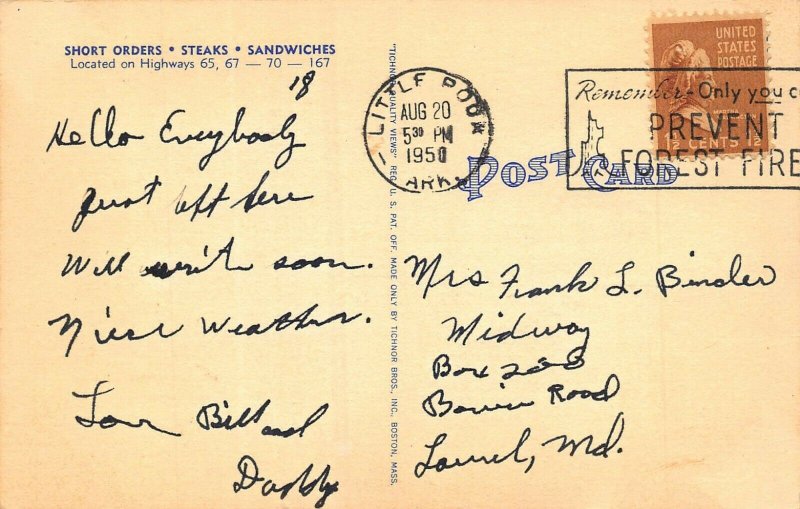 SHORT ORDERS • STEAKS • SANDWICHES
Located on Highways 65, 67 — 70 — 167
18
Hello Everybody
Just off here
Will write soon.
Niece Weather.
Love Bill and
"TICHNOR QUALITY VIEWS" REG. U. S. PAT. OFF. MADE ONLY BY TICHNOR BROS., INC., BOSTON, MASS.
LITTLE ROCK
AUG 20
5 30 PM
1950
ARK.
UNITED
STATES
POSTAGE
MARTHA
1/2 CENTS
Remember - Only you c
PREVENT
FOREST FIRE
POST CARD
Mrs Frank L. Binder
Midway
Box
Bowie Road
Laurel, Md.